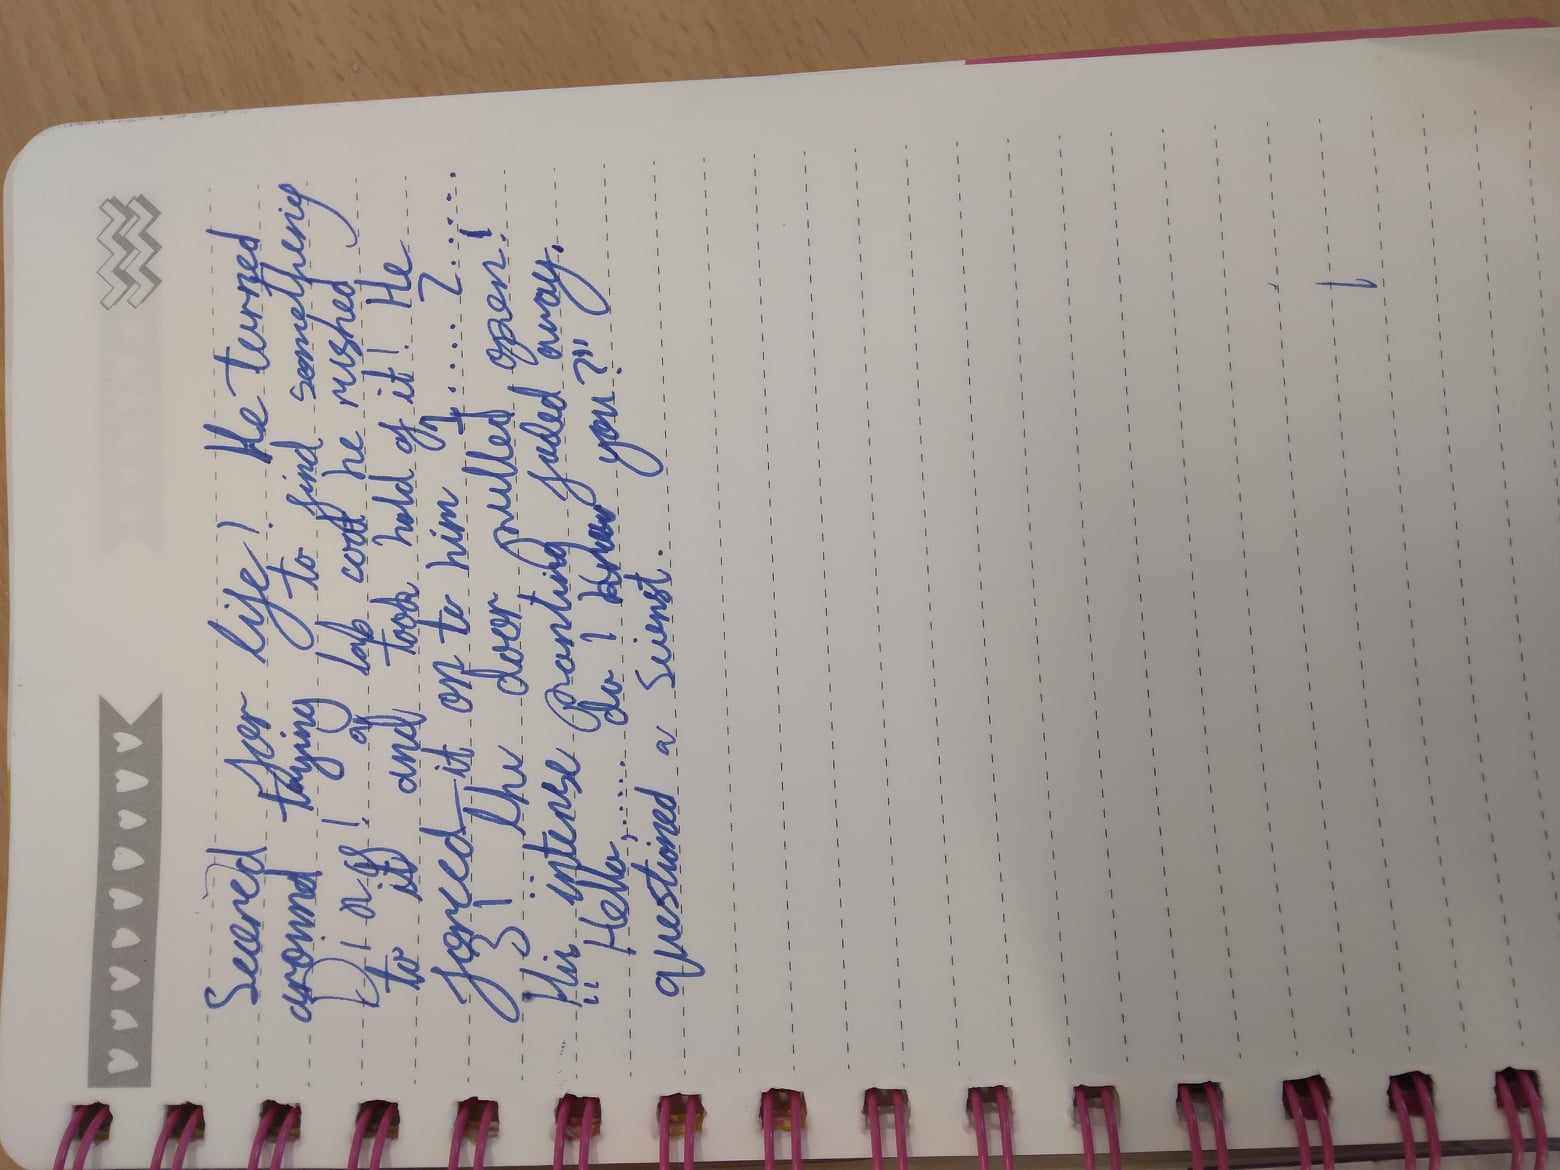 Scarred for life! He turned
around trying to to find something
! a lab coat he rushed
to it and took hold of it! He
forced it on to him 1..... 2.....
3! the door pulled open!
His intense panting faded away.
"Hello,.... do I know you?"
questioned a Scienst.